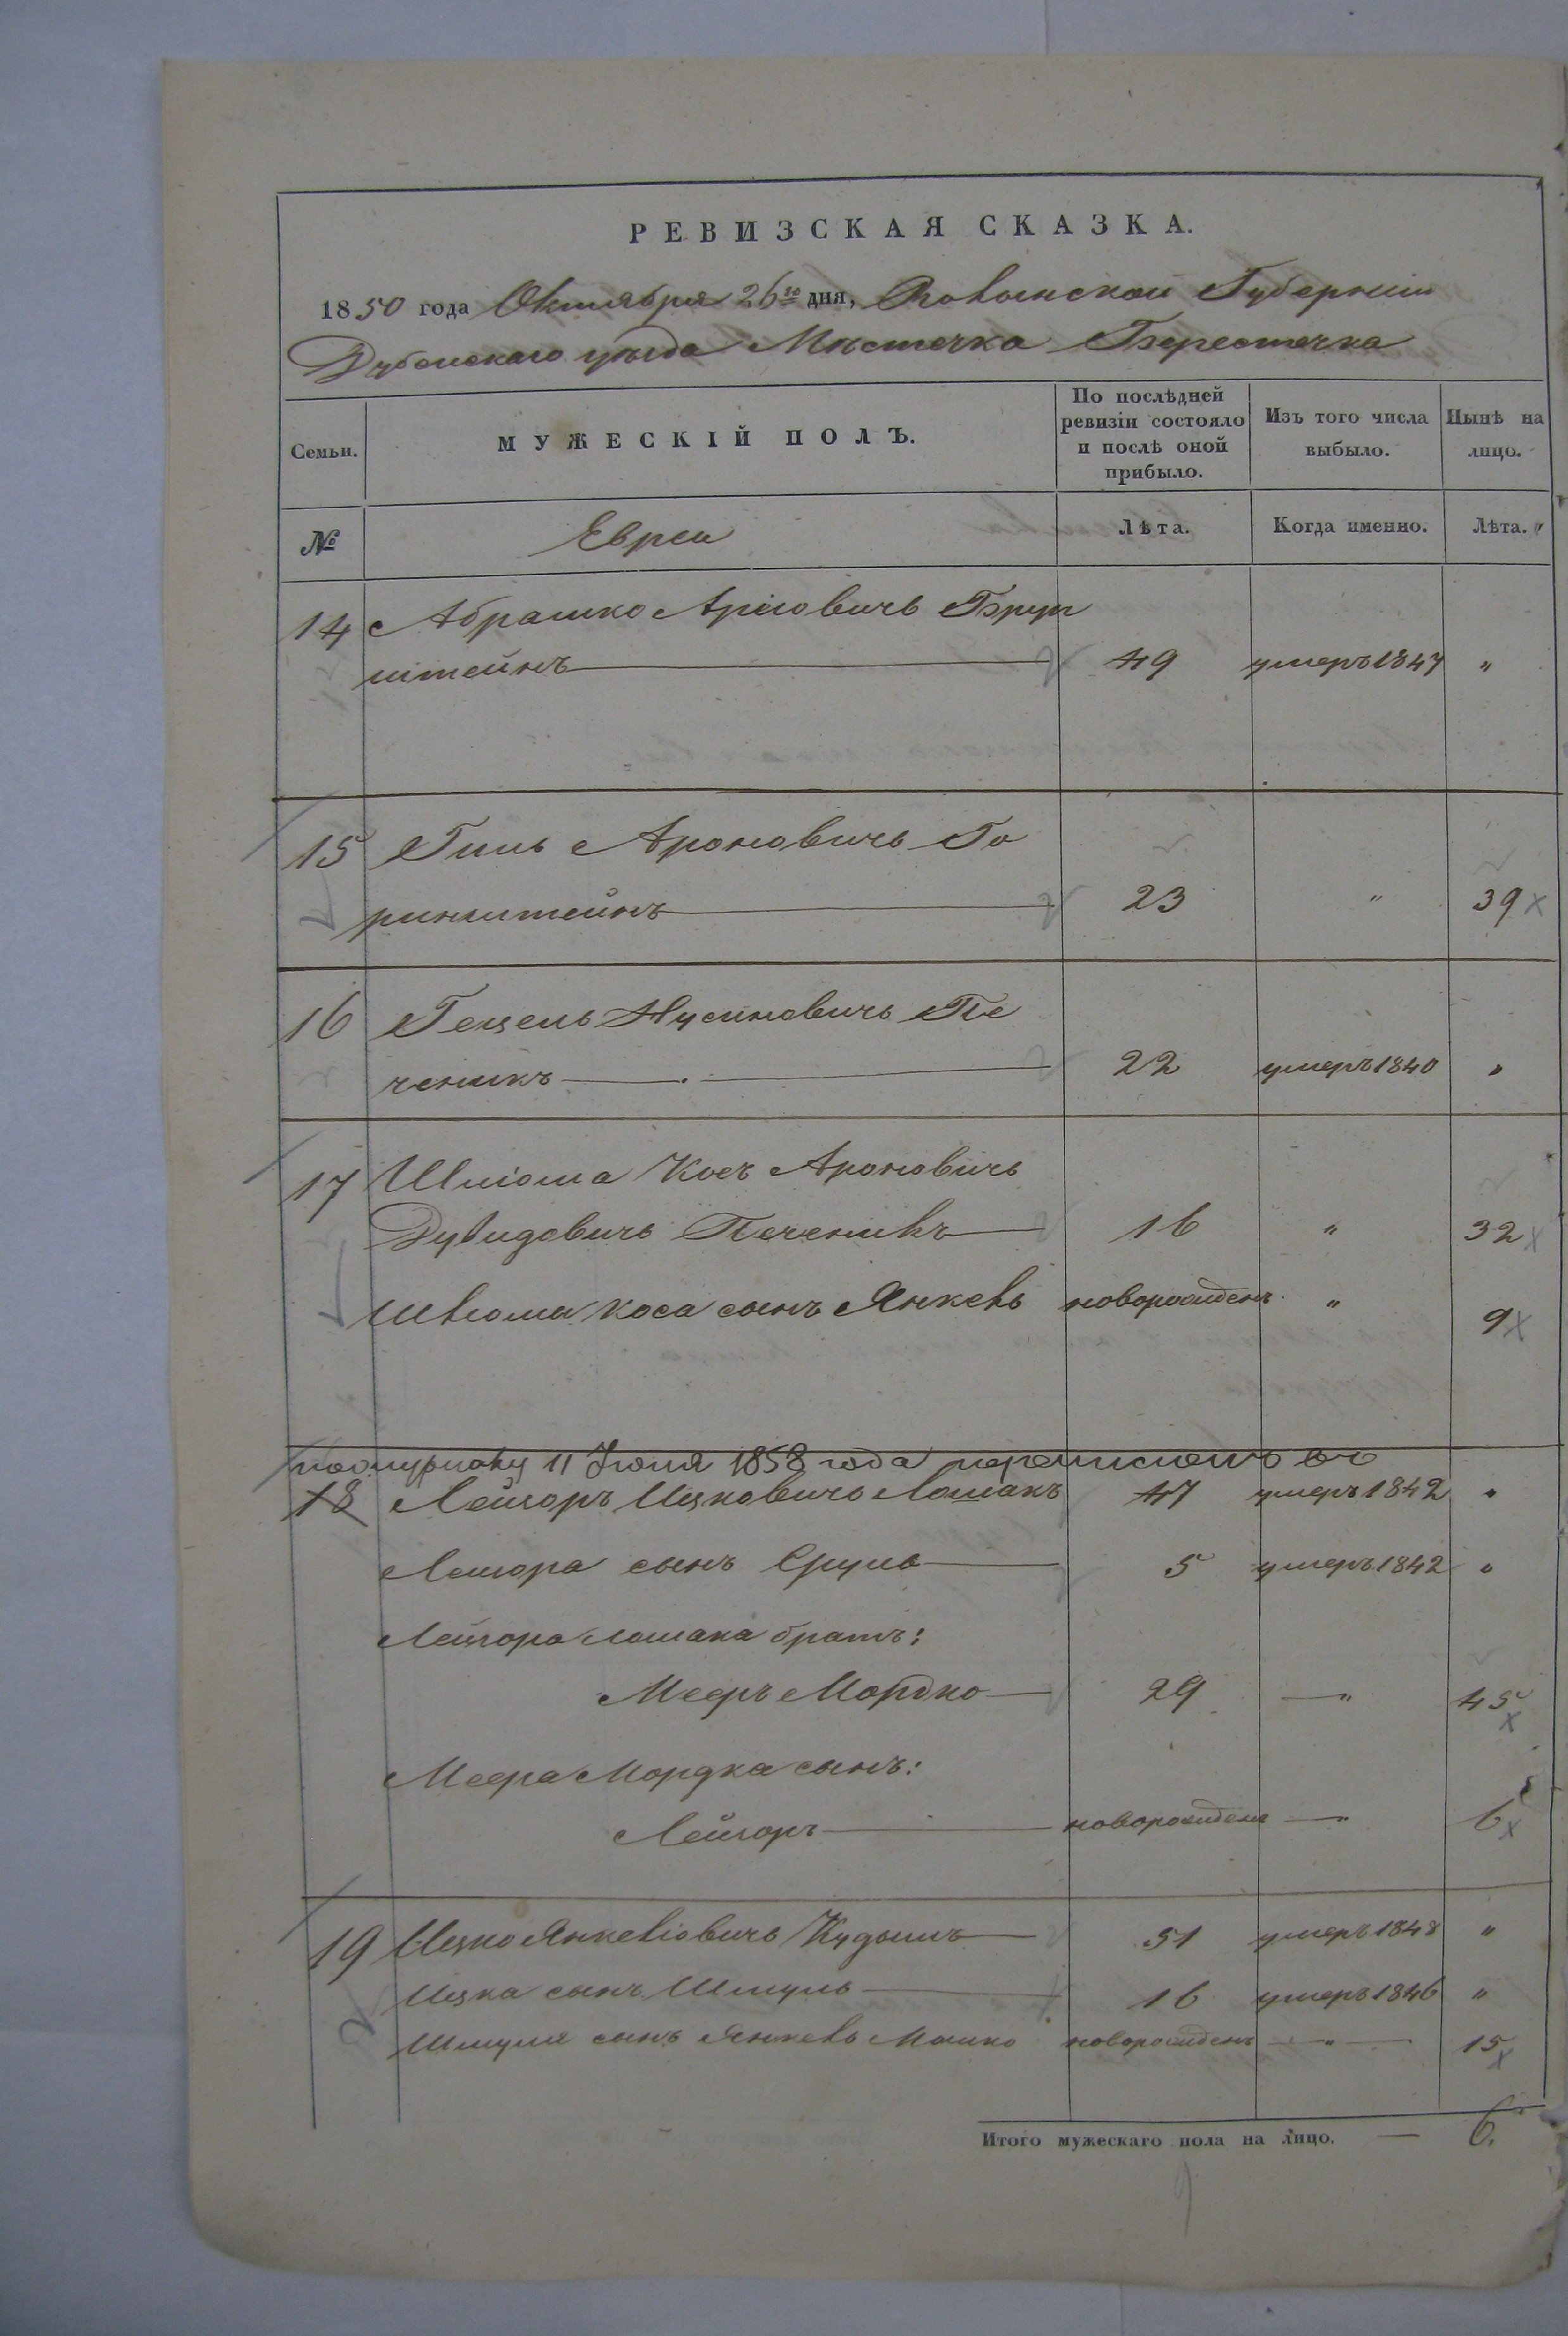 РЕВИЗСКАЯ СКАЗКА.
1850 года Октября 26го дня, Волынской Губерніи
Дубенскаго уѣзда Мѣстечка Берестечка
Семьи.
МУЖЕСКІЙ ПОЛЪ.
По послѣдней
ревизіи состояло
и послѣ оной
прибыло.
Изъ того числа
выбыло.
Нынѣ на
лицо.
№ Евреи Лѣта. Когда именно. Лѣта.
14 Абрашко Аріовичъ
штейнъ 49 умеръ 1847 "
15 Гиль Ароновичъ Го
ринштейнъ 23 " 39
16 Гецель Нусиновичъ Пе
ченикъ 22 умеръ 1840 "
17 Шліома Косъ Ароновичъ
Дувидовичъ Печеникъ 16 " 32
Шліомы Коса сынъ Янкель новорожденъ " 9
11 Іюня 1858 года въ
18 Лейзоръ Ицковичъ Лошакъ 47 умеръ 1842 "
Лейзора сынъ Сруль 5 умеръ 1842 "
Лейзора Лошака братъ:
Мееръ Мордко 29 " 45
Меера Мордка сынъ:
Лейзоръ новорожденъ " 6
19 Ицко Янкеліовичъ Кудышъ 51 умеръ 1848 "
Ицка сынъ Шмуль 16 умеръ 1846 "
Шмуля сынъ Янкель Мошко новорожденъ " 15
Итого мужескаго пола на лицо. — 6.